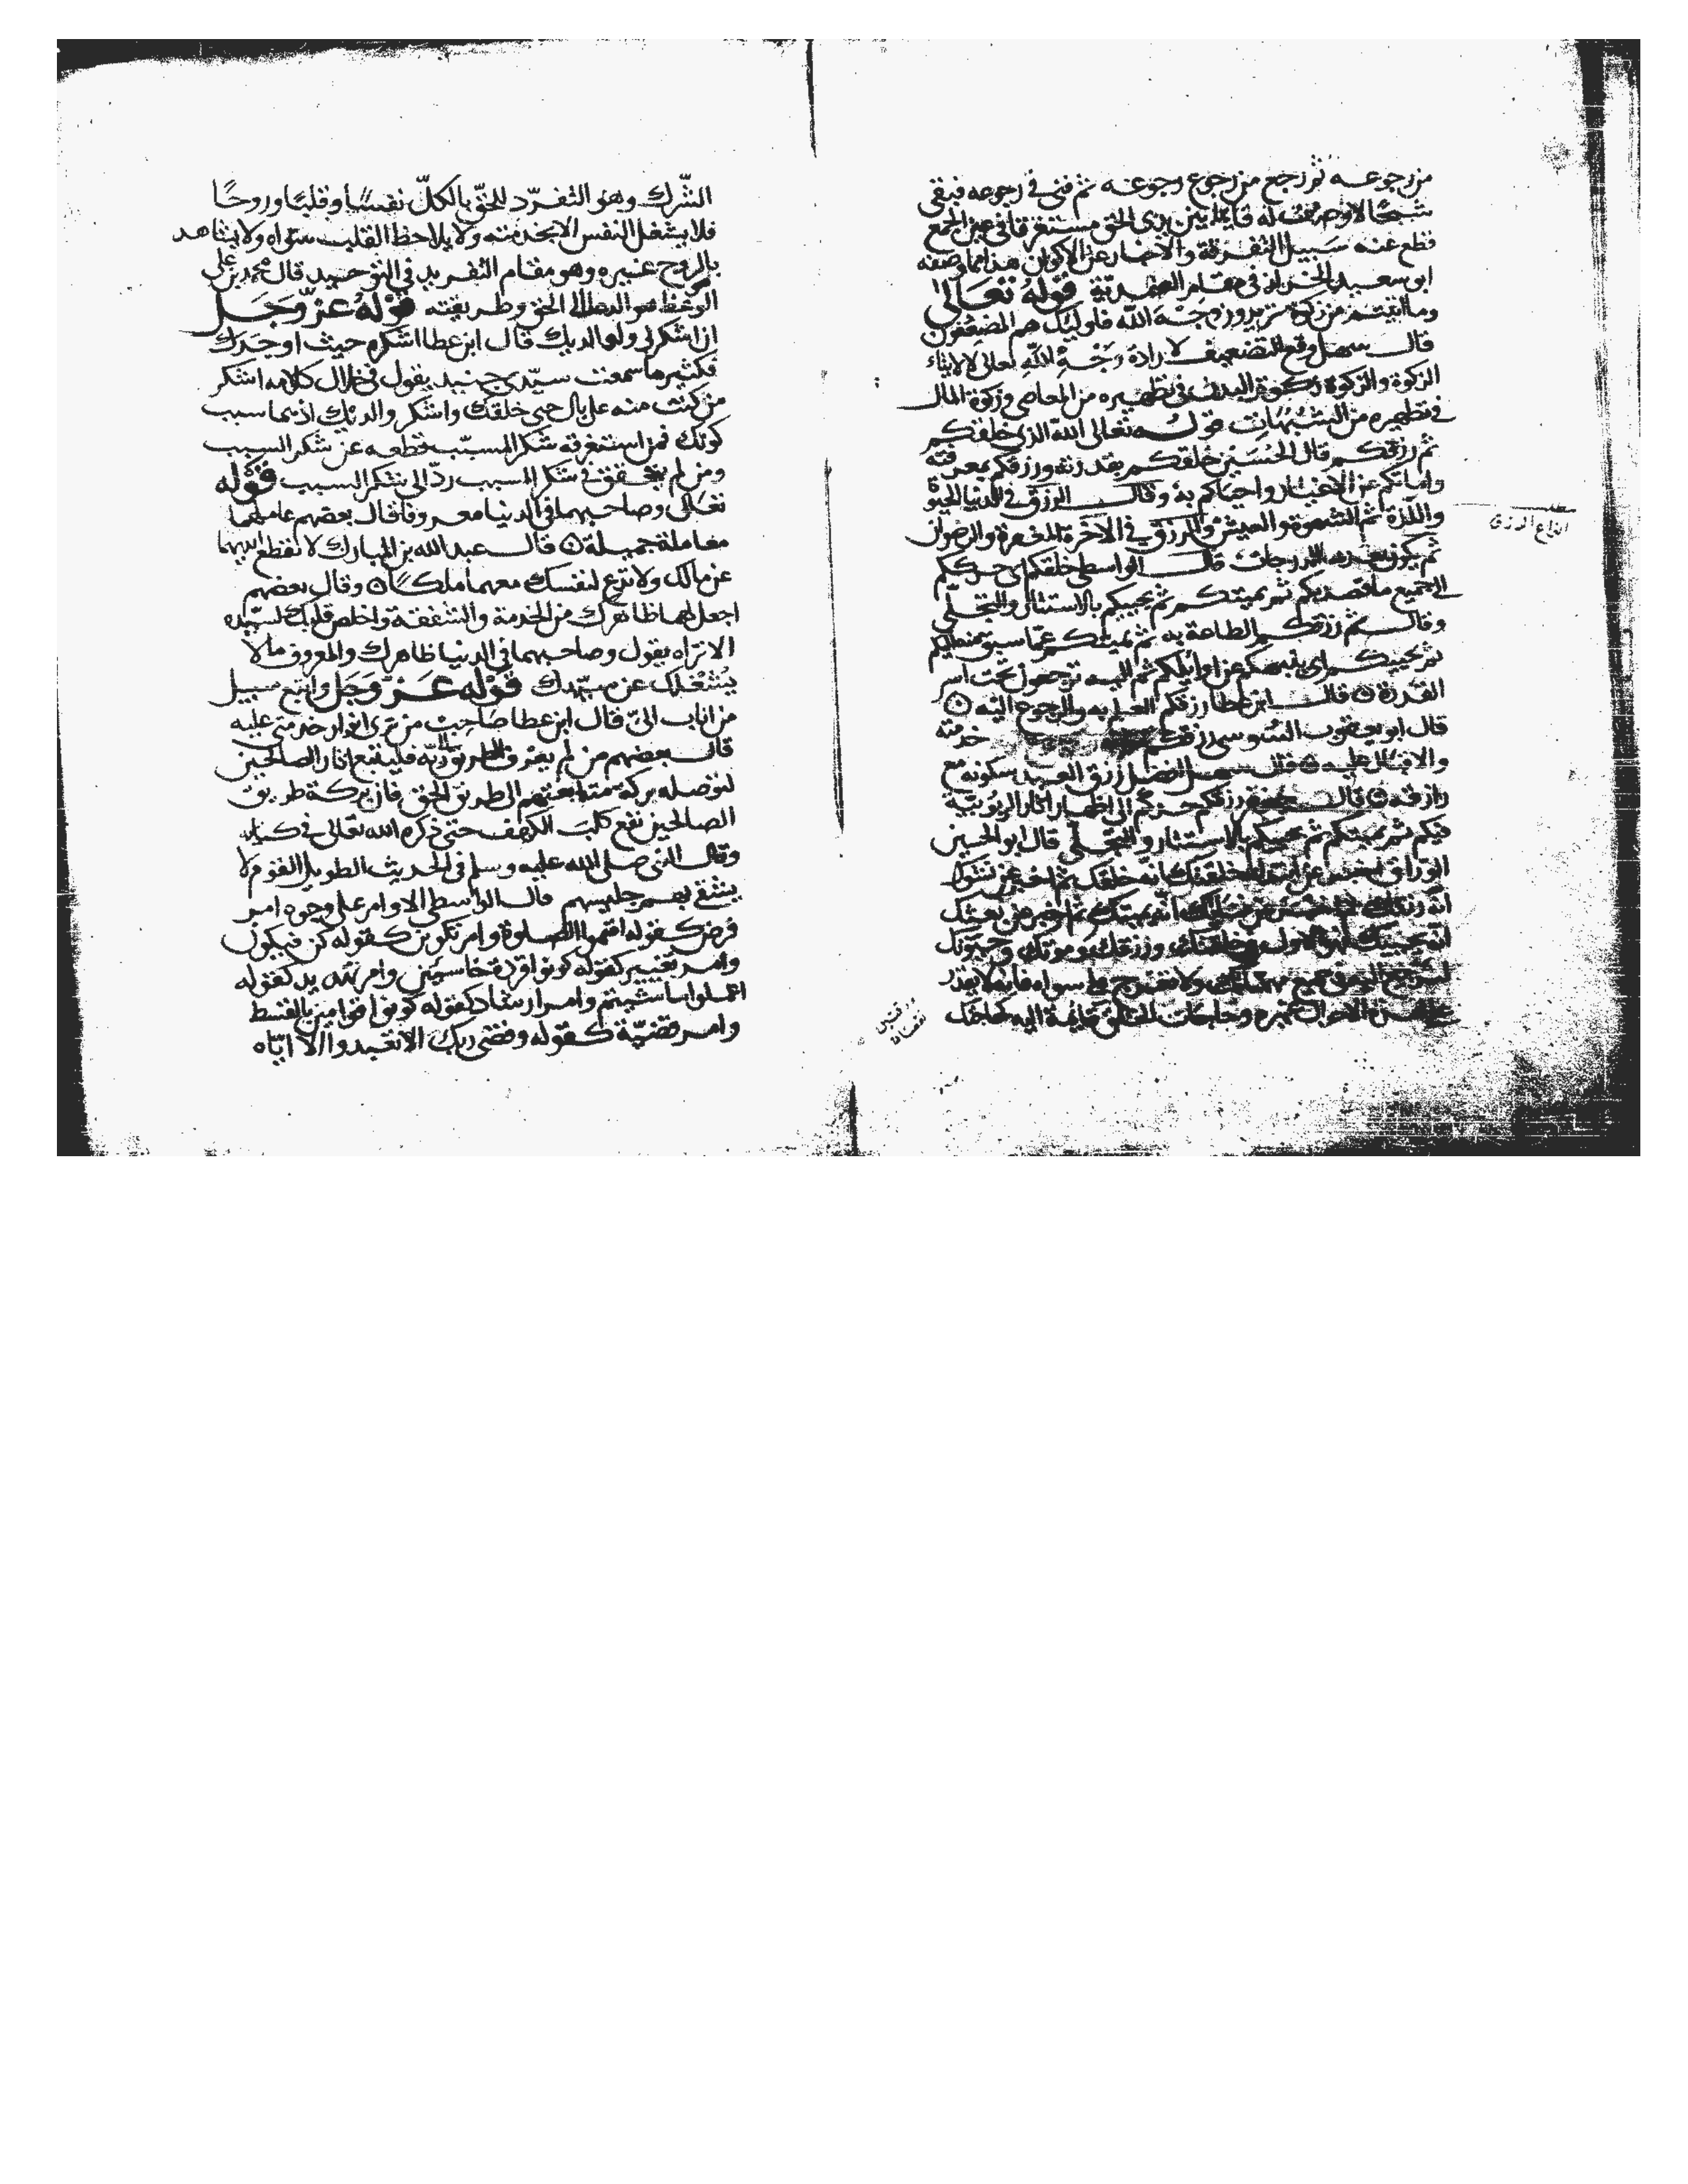 من رجوعه ثم رجع من رجوع رجوعه ثم فنى في رجوعه فبقى
شبحًا لا وصف له قايمًا بين يدى الحق مستغرقا في عين الجمع
قطع عنه سبيل التفرقة والاخبار عن الاكوان هذا مما وصفه
ابو سعيد الخراز في مقام قوله تعالى
وما اتيتم من زكوة تريدون وجه الله فاوليك هم المضعفون
قال سهل وقع التضعيف لارادة وجه الله تعالى لا لايتاء
الزكوة والزكوة زكوة البدن في تطهيره من المعاصي وزكوة المال
في تطهيره من الشبهات قوله تعالى الله الذي خلقكم
ثم رزقكم قال الحسين خلقكم بقدرته ورزقكم بمعرفته
واماتكم عن الاغيار واحياكم به وقال الرزق في الدنيا الحيوة
واللذة ثم الشهوة والعيش والرزق في الاخرة المغفرة والرضوان
ثم يكون بعده الدرجات قال الواسطي خلقكم اي حرككم
الى جميع ما قصد بكم ثم يميتكم ثم يحييكم بالاستتار والتجلي
وقال ثم رزقكم الطاعة به ثم يميتكم عما سبق منه اليكم
ثم يحييكم اى ينبهكم عن اوايلكم ثم اليه ترجعون تحت اسر
القدرة قال ابن عطا رزقكم العلم به والرجوع اليه
قال ابو يعقوب السوسى رزقكم خدمته
والاقبال عليه قال سهل افضل رزق العبد سكونه مع
رازقه قال جعفر رزقكم حرككم الى اظهار اثار الربوبية
فيكم ثم يميتكم ثم يحييكم بالاستتار والتجلي قال ابو الحسين
الوراق اخبر عن ابتدا خلقتك انه خلقك ثم اخبر عن
انه رزقك ثم اخبر عن انه يميتك ثم اخبر عن بعثك
انه يحييك خلقتك ورزقك وموتك وحيوتك
لترجع اليه في جميع مهماتك ولا تعرج على سواه فانه لا يقدر
على الاحوال غيره وحاجات الخلق قايمة اليه كحاجتك
انواع الرزق
الشرك وهو التفرد للحق بالكل نفسًا وقلبًا وروحًا
فلا يشغل النفس الا بخدمته ولا يلاحظ القلب سواه ولا يشاهد
بالروح غيره وهو مقام التفريد في التوحيد قال محمد بن على
الوعظ هو الدال الى الحق وطريقته قوله عز وجل
ان اشكر لي ولوالديك قال ابن عطا اشكره حيث اوجدك
فكثير ما سمعت سيدي جنيد يقول في خلال كلامه اشكر
من كنت منه على بال حين خلقك واشكر والديك اذ هما سبب
كونك فمن استغرقه شكر المسبب قطعه عن شكر السبب
ومن لم يتحقق في شكر المسبب رد الى شكر السبب قوله
تعالى وصاحبهما في الدنيا معروفا قال بعضهم عاملهما
معاملة جميلة قال عبد الله بن المبارك لا تقطع ايديهما
عن مالك ولا تدع لنفسك معهما ملكًا وقال بعضهم
اجعل لهما ظاهرك من الخدمة والشفقة واخلص قلبك لسيده
الا تراه يقول وصاحبهما في الدنيا ظاهرك والمعروف ما لا
يشغلك عن سيدك قوله عز وجل واتبع سبيل
من اناب الي قال ابن عطا صاحب من ترى انوار خدمتى عليه
قال بعضهم من لم يعرف الطريق الى ربه فليتبع اثار الصالحين
لتوصله بركة متابعتهم الى طريق الحق فان بركة طريق
الصالحين نفع كلب الكهف حتى ذكره الله تعالى في كتابه
وقال النبى صلى الله عليه وسلم في الحديث الطويل القوم لا
يشقى بهم جليسهم قال الواسطي الاوامر على وجوه امر
فرض كقوله اقيموا الصلوة وامر تكوين كقوله كن فيكون
وامر تغيير كقوله كونوا قردة خاسئين وامر تهديد كقوله
اعملوا ما شيتم وامر ارشاد كقوله كونوا قوامين بالقسط
وامر قضية كقوله وقضى ربك الا تعبدوا الا اياه